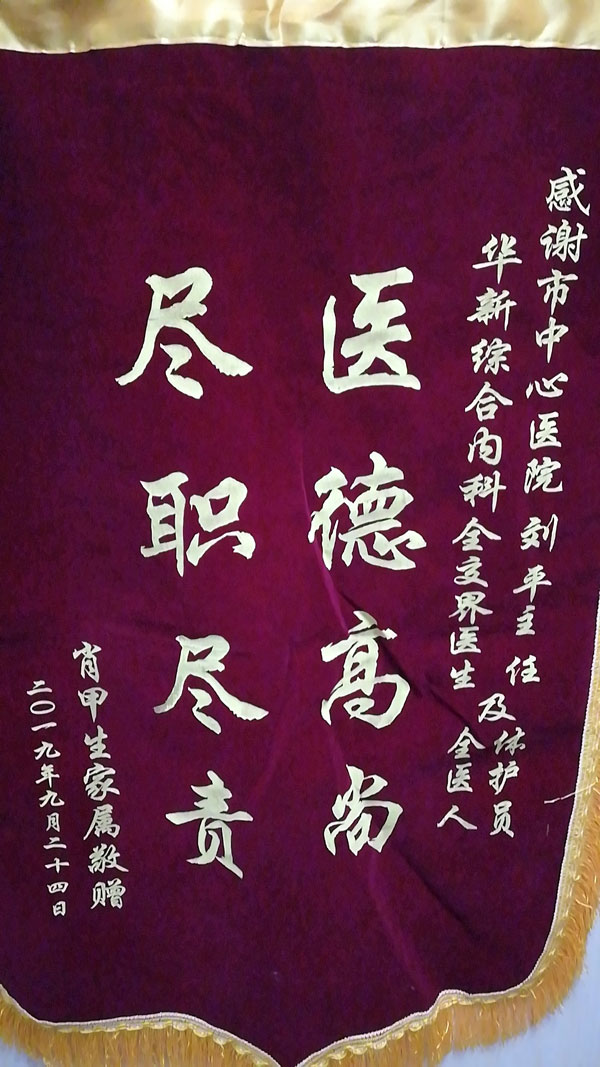 感谢市中心医院 刘平主任 及体护员
华新综合内科全交界医生 全医人
医德高尚
尽职尽责
肖甲生家属敬赠
二〇一九年九月二十四日